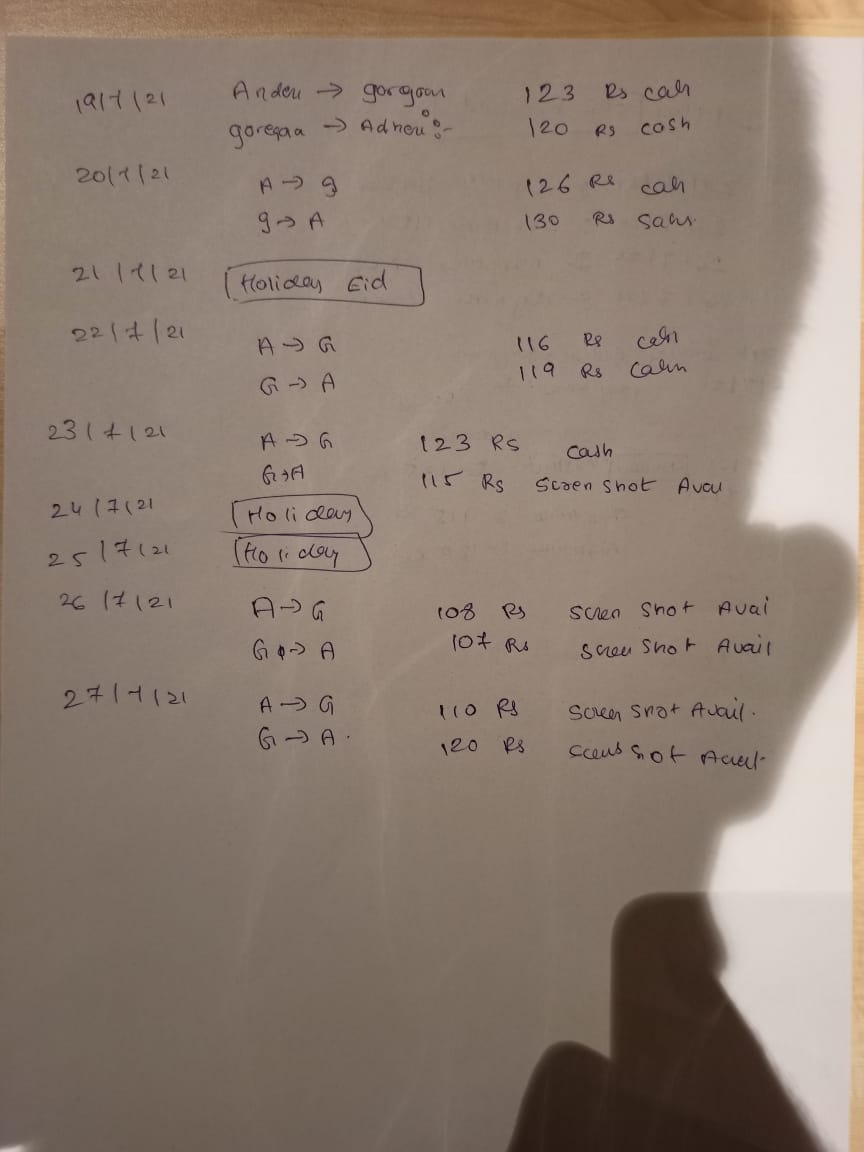 19/7/21 Anderi → gorgoan 123 Rs cah
goregaa → Adheri :- 120 Rs cosh
20/7/21
A → g 126 Rs cah
g → A 130 Rs
21/7/21 Holiday Eid
22/7/21
A → G 116 Rs cash
G → A 119 Rs Cahn
23/7/21 A → G 123 RS cash
G → A 115 Rs Screen shot Avai
24/7/21 Holiday
25/7/21 Holiday
26/7/21 A → G 108 Rs Scren Shot Avai
G → A 107 Rs Screen Shot Avail
27/7/21 A → G 110 Rs Screen Shot Avail.
G → A. 120 Rs